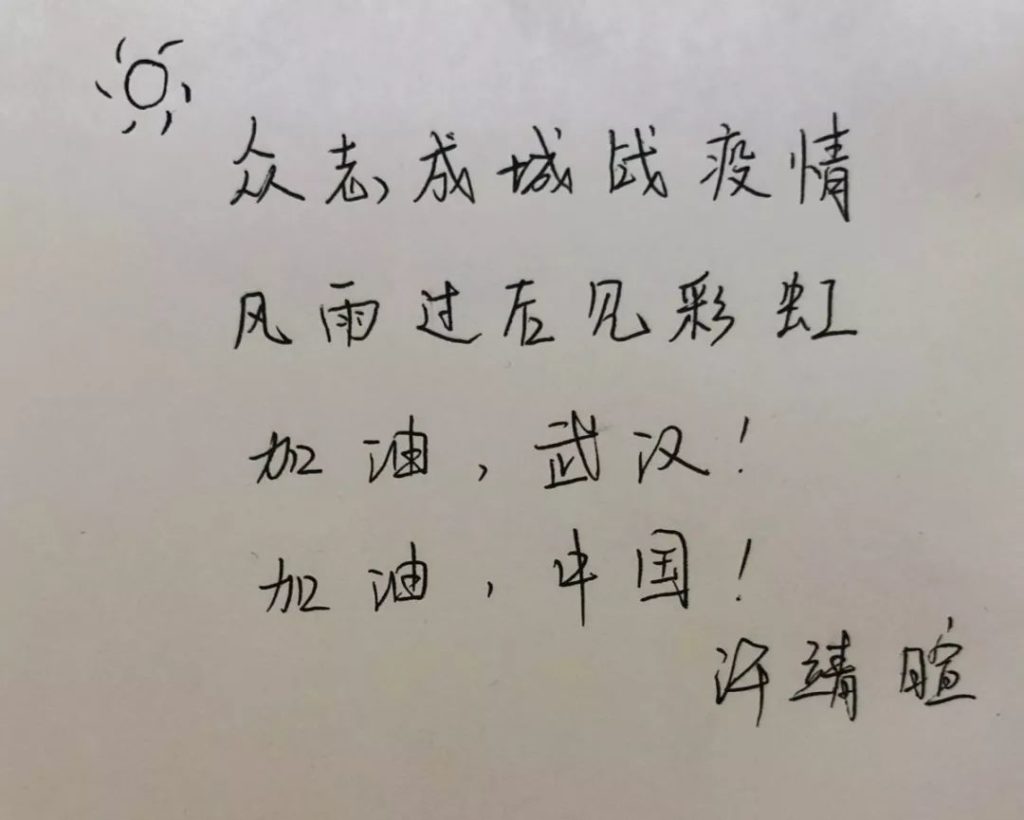 众志成城战疫情
风雨过后见彩虹
加油，武汉！
加油，中国！
许靖暄